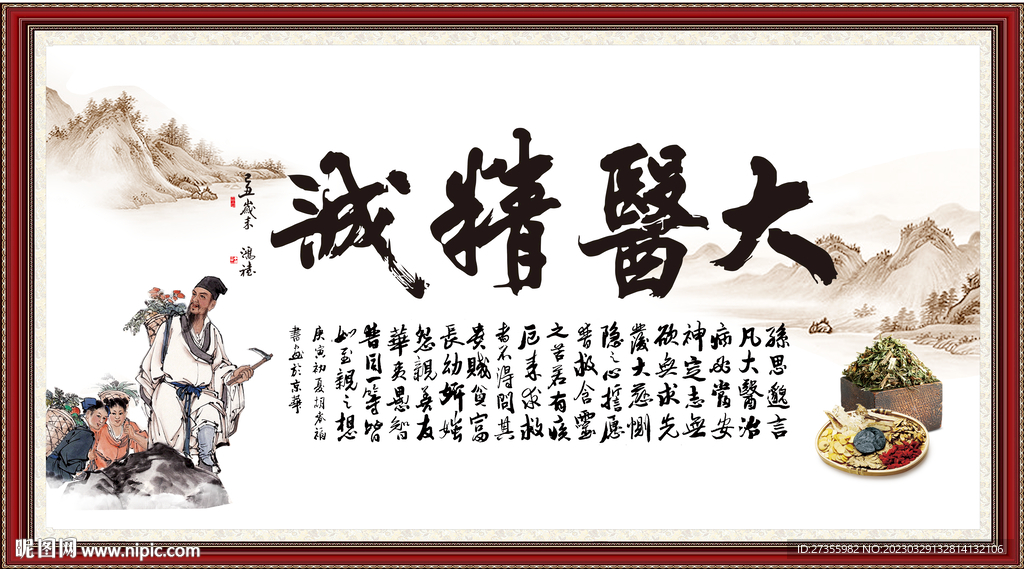 大醫精誠
孫思邈言
凡大醫治
病必當安
神定志無
欲無求先
發大慈惻
隐之心誓愿
普救含靈
之苦若有疾
厄来求救
者不得問其
貴賤貧富
長幼妍媸
怨親善友
華夷愚智
普同一等皆
如至親之想
庚寅初夏胡
書於京華
己丑歲末
昵图网 www.nipic.com
ID:27355982 NO:20230329132814132106